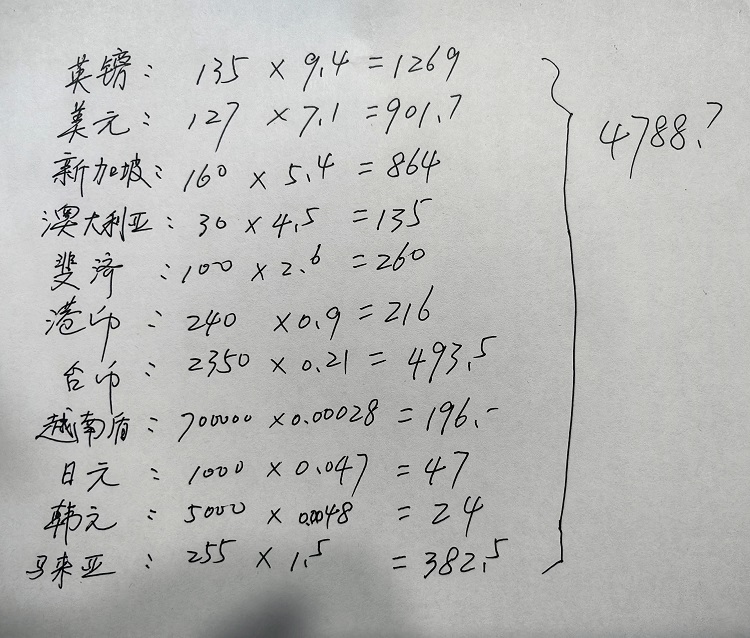 英镑: 135 × 9.4 = 1269
美元: 127 × 7.1 = 901.7
新加坡: 160 × 5.4 = 864
澳大利亚: 30 × 4.5 = 135
斐济: 100 × 2.6 = 260
港币: 240 × 0.9 = 216
台币: 2350 × 0.21 = 493.5
越南盾: 700000 × 0.00028 = 196.-
日元: 1000 × 0.047 = 47
韩元: 5000 × 0.0048 = 24
马来亚: 255 × 1.5 = 382.5
4788.7